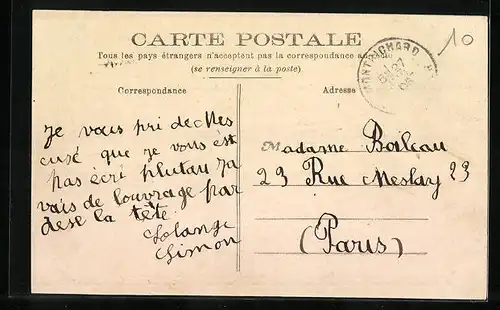 10
CARTE POSTALE
Tous les pays étrangers n'acceptent pas la correspondance au
(se renseigner à la poste)
MONTRICHARD
27
Correspondance
Adresse
Je vous pri de Mes
cusé que je vous est
pas ecri plutau ja
vais de louvrage par
dese la tète
Solange
Simon
Madame Boileau
23 Rue Meslay 23
(Paris)